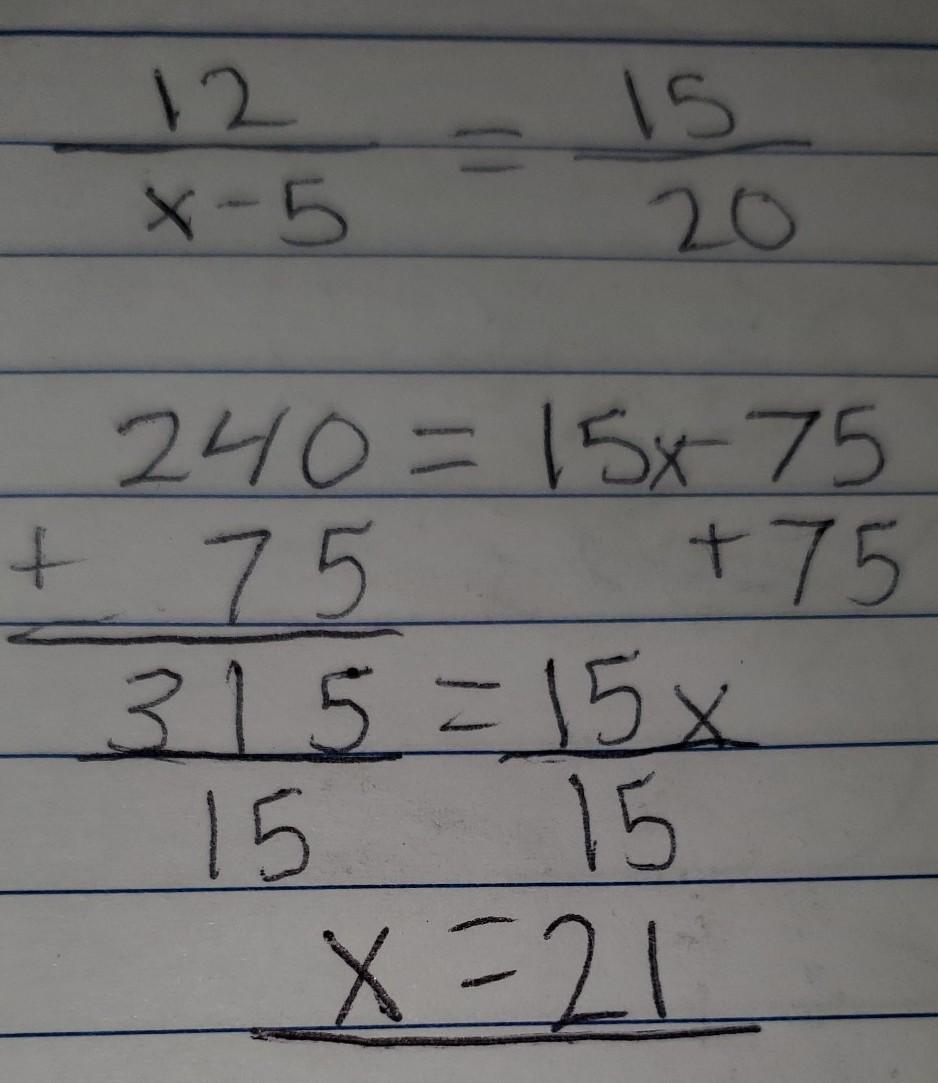 12 = 15
x-5 20
240 = 15x-75
+ 75 +75
315 = 15x
15 15
x = 21